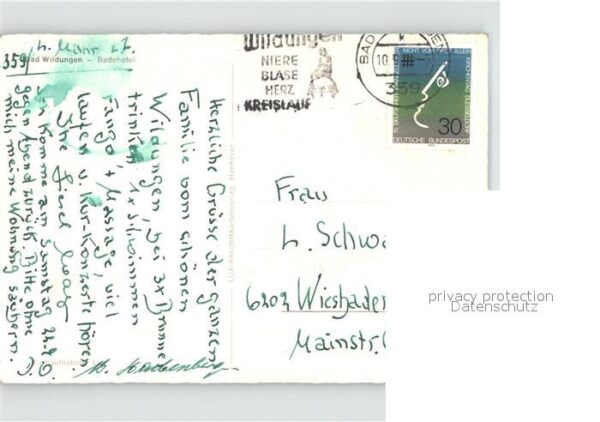 359/
Bad Wildungen – Badehotel
Herzliche Grüsse der ganzen
Familie vom schönen
Wildungen, bei 3x Brunnen
trinken, 1x schwimmen
Fango, + Massage, viel
laufen u. Kur-Konzerte hören
Ihre
Ich komme am Samstag
gegen Abend zurück. Bitte ohne
mich mein Wohnung säubern.
Wildungen
NIERE
BLASE
HERZ
KREISLAUF
BAD
359
NICHT VOM BROT ALLEIN
30
DEUTSCHE BUNDESPOST
Frau
L. Schwa
6202 Wiesbaden
Mainstr.
privacy protection
Datenschutz